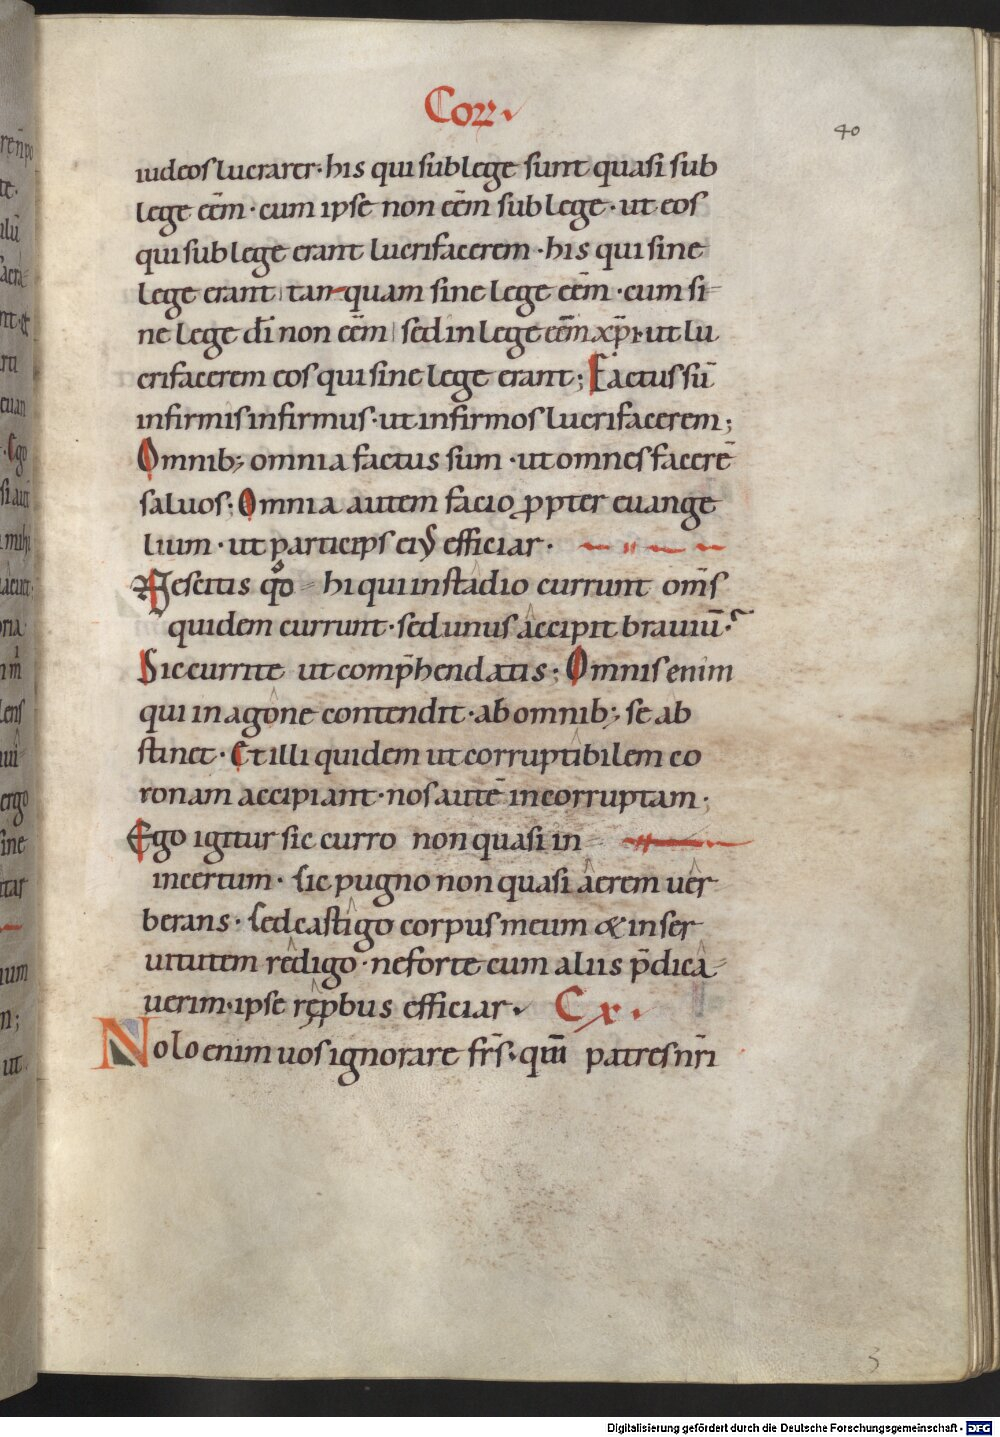 Corꝝ
40
iudeos lucrarer · his qui sub lege sunt quasi sub
lege ee͞m · cum ipse non ee͞m sub lege · ut eos
qui sub lege erant lucrifacerem · his qui sine
lege erant tanquam sine lege ee͞m · cum si
ne lege di͞ non ee͞m sed in lege ee͞m xp͞i · ut lu
crifacerem eos qui sine lege erant; Factus su͞
infirmis infirmus · ut infirmos lucrifacerem;
Omnib; omnia factus sum · ut omnes facere͞
saluos; Omnia autem facio ꝓpter euange
lium · ut particeps ei efficiar ·
Nescitis qo hi qui in stâdio currunt om͞s
quidem currunt · sed unus âccipit brauiu͞ ·
Sic currite ut comp͞hendatis; Omnis enim
qui in agône contendit · ab omnib; se ab
stinet · Et illi quidem ut corruptîbilem co
ronam accipiant · nos aute͞ incorruptam ·
Ego igitur sic curro non quasi in
incertum · sic pugno non quasi âerem uêr
berans · sed castîgo corpus meum & in ser
uitutem rêdigo · ne forte cum aliis p͞dicâ
uerim · ipse rêpbus efficiar
C x ·
Nolo enim uos ignorare fr͞s · qm͞ patres nr͞i
3
Digitalisierung gefördert durch die Deutsche Forschungsgemeinschaft - DFG